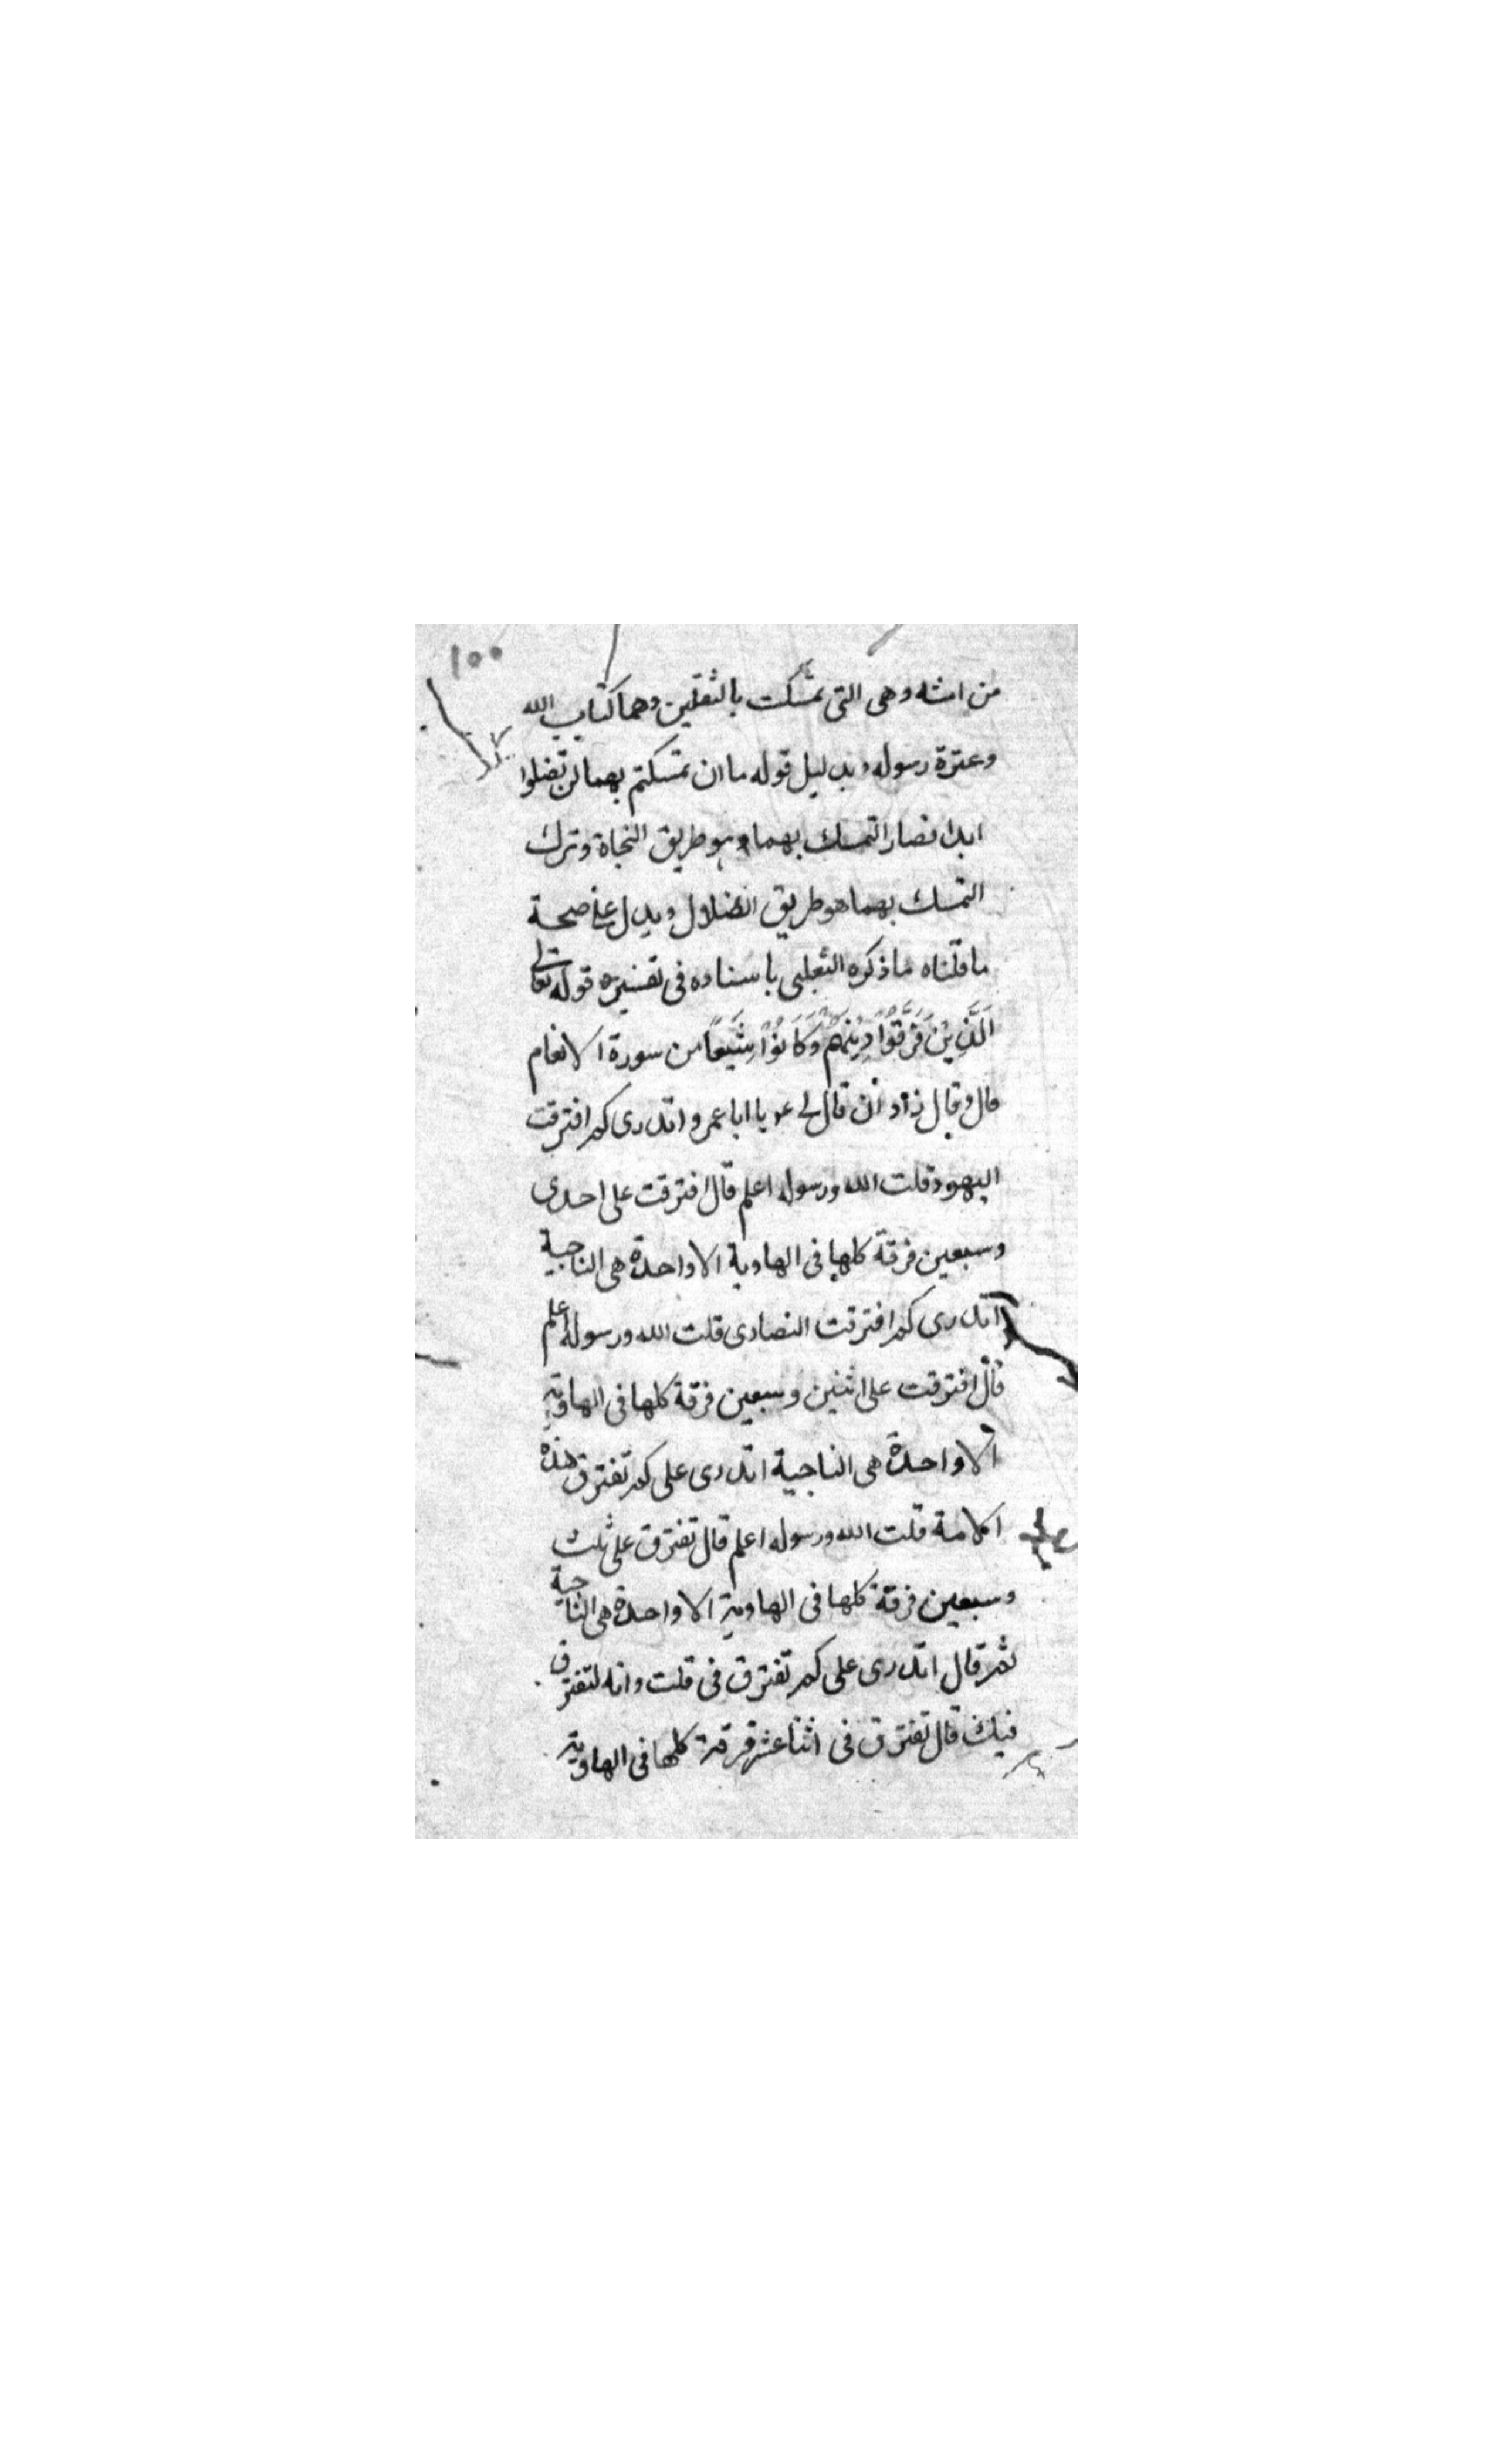 ١٠٠
من امته وهى التى تمسكت بالثقلين وهما كتاب الله
وعترة رسوله بدليل قوله ما ان تمسكتم بهما لن تضلوا
ابدا فصار التمسك بهما وهو طريق النجاة وترك
التمسك بهما هو طريق الضلال ويدل على صحة
ما قلناه ما ذكره الثعلبى باسناده فى تفسيره قوله تعالى
اَلَّذِيْنَ فَرَّقُوْا دِيْنَهُمْ وَكَانُوْا شِيَعًا من سورة الانعام
قال وقال زاد ان قال لى يا ابا عمرو اتدرى كم افترقت
اليهود قلت الله ورسوله اعلم قال افترقت على احدى
وسبعين فرقة كلها فى الهاوية الا واحدة هى الناجية
اتدرى كم افترقت النصارى قلت الله ورسوله اعلم
قال افترقت على اثنين وسبعين فرقة كلها فى الهاوية
الا واحدة هى الناجية اتدرى على كم تفترق هذه
الامة قلت الله ورسوله اعلم قال تفترق على ثلث
وسبعين فرقة كلها فى الهاوية الا واحدة هى الناجية
ثم قال اتدرى على كم تفترق فى قلت وانه لتفترق
فيك قال تفترق فى اثنا عشر فرقة كلها فى الهاوية